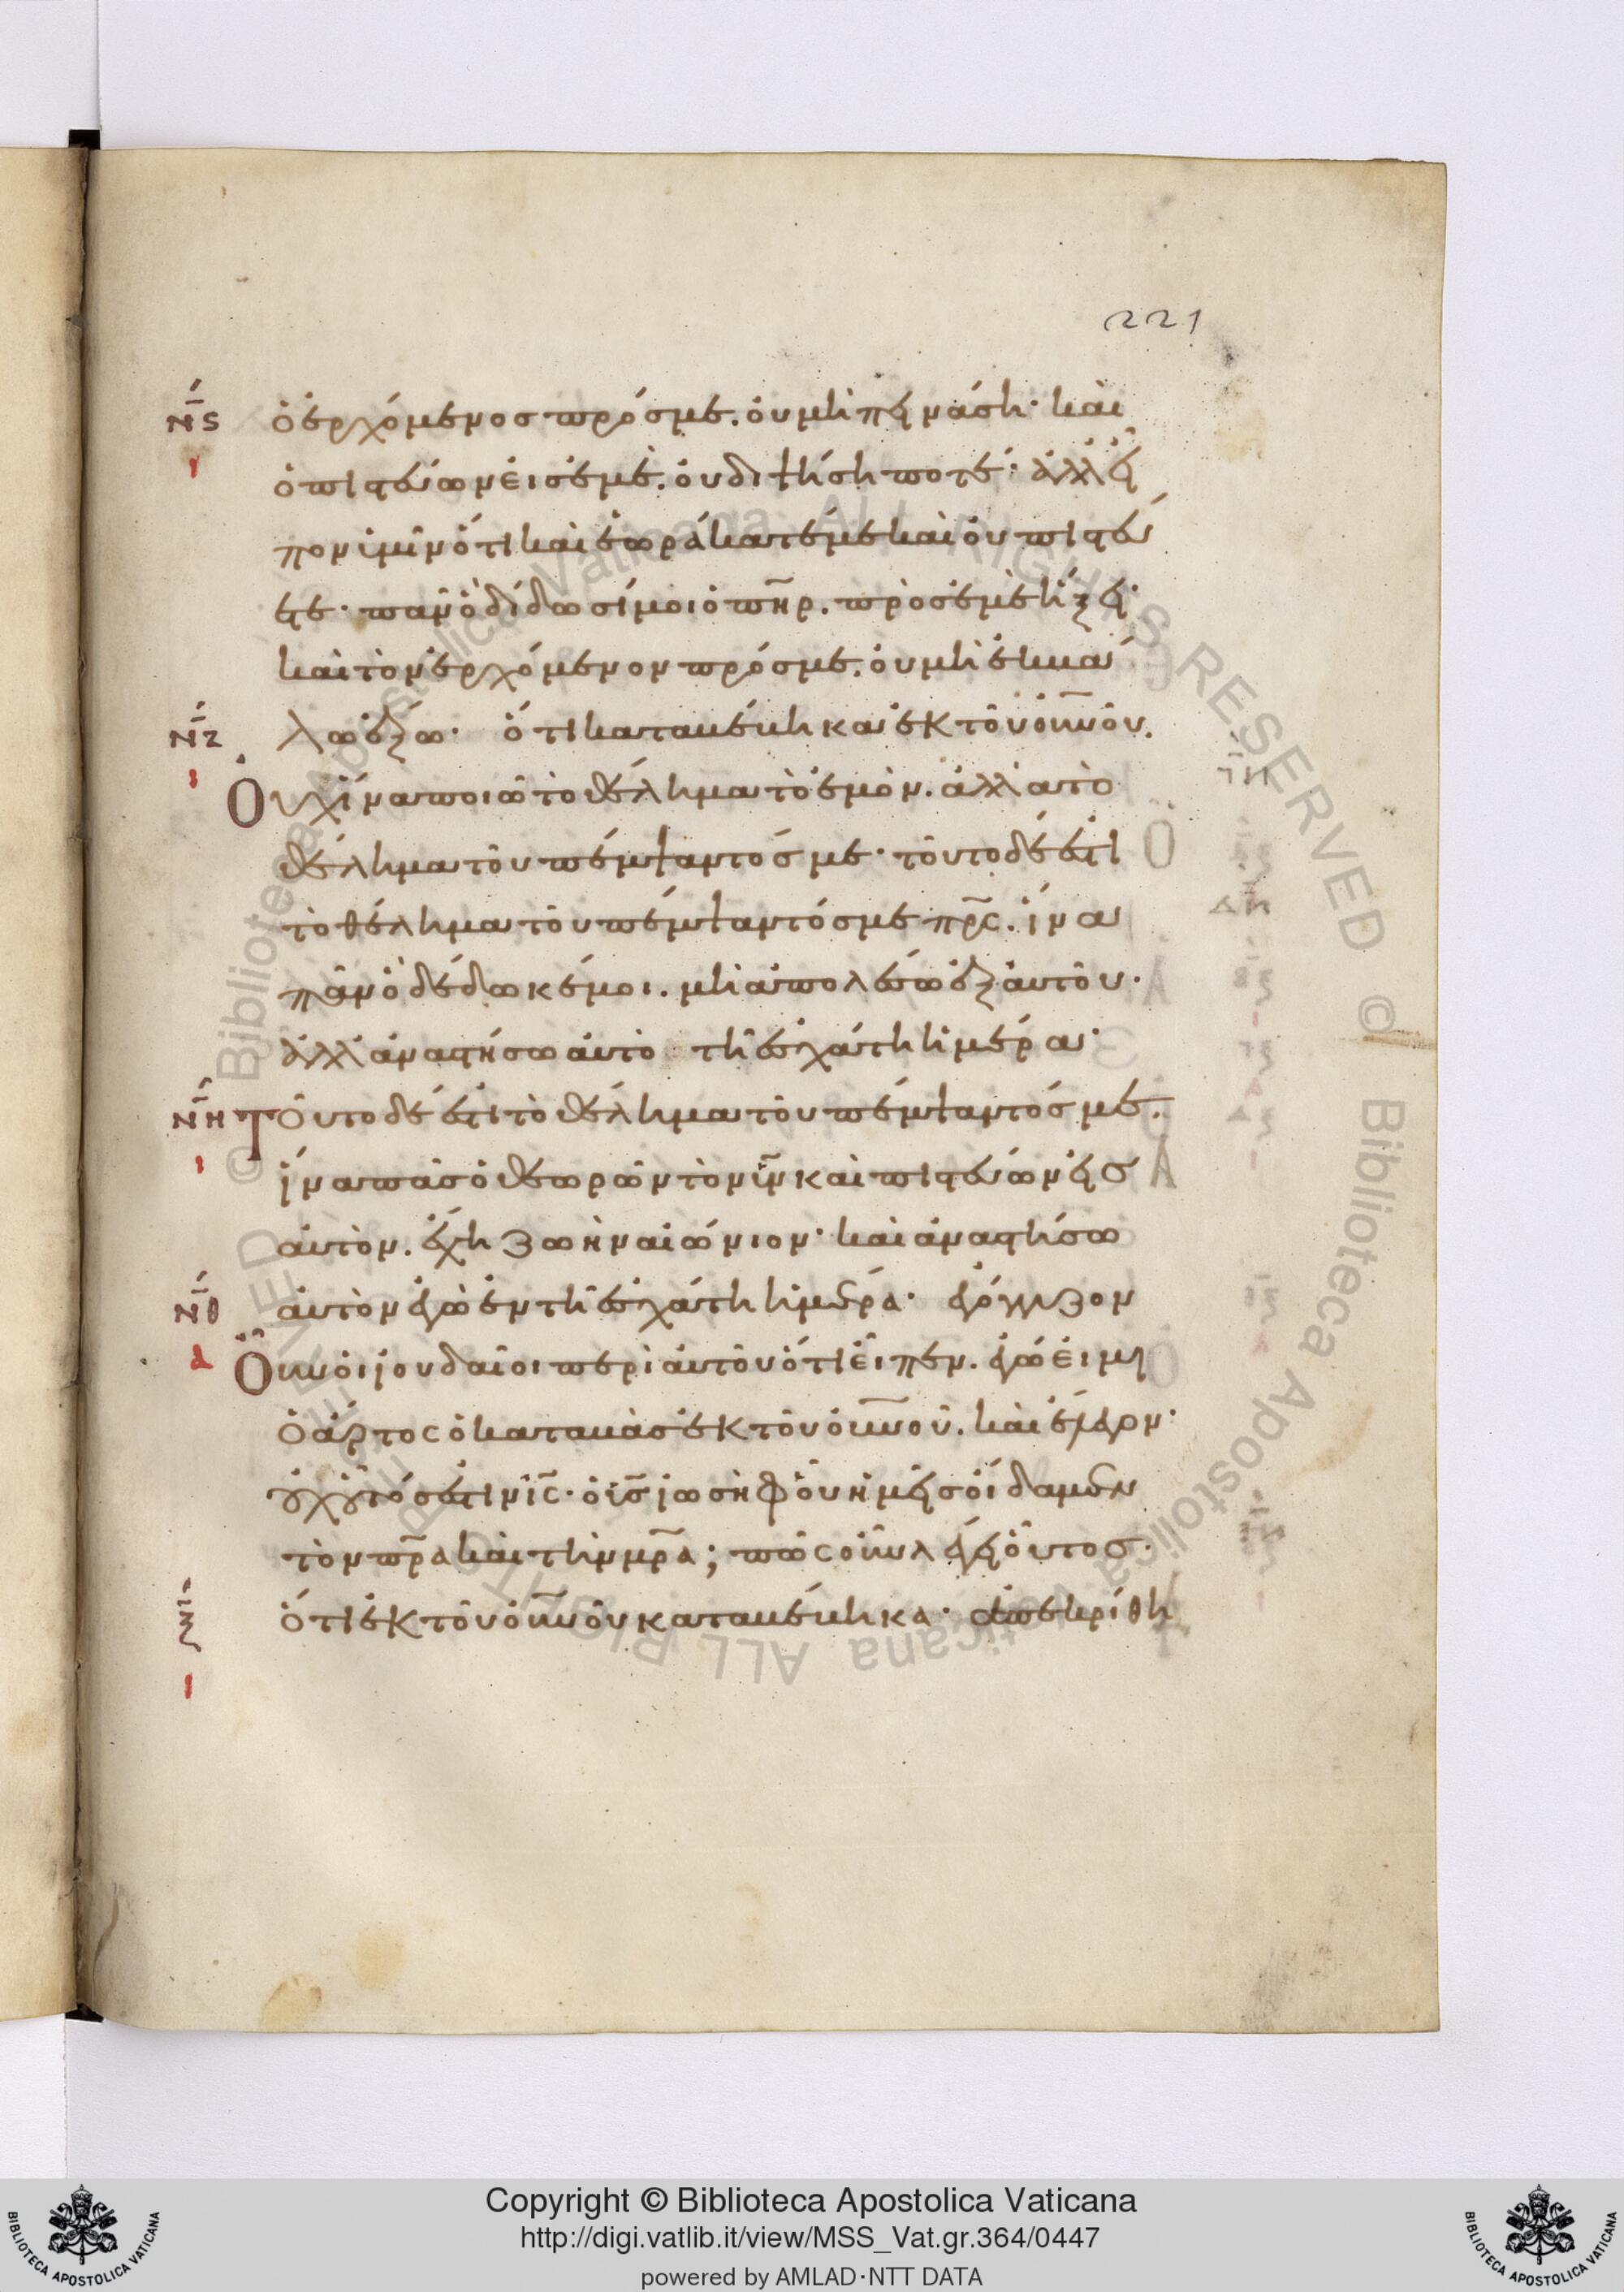 221
ΝϚ ὁ ἐρχόμενος πρός με. οὐ μὴ πεινάση· καὶ
ὁ πιστεύων εἰς ἐμὲ. οὐ διψήση ποτέ· ἀλλ' εἶ
πον ὑμῖν ὅτι καὶ ἑωράκατέ με καὶ οὐ πιστεύ
ετε· πᾶν ὃ δίδωσί μοι ὁ πηρ. πρὸς ἐμὲ ἥξει·
καὶ τὸν ἐρχόμενον πρός με. οὐ μὴ ἐκβά
ΝΖ λω ἔξω· ὅτι καταβέβηκα ἐκ τοῦ οὐνοῦ.
Οὐχ ἵνα ποιῶ τὸ θέλημα τὸ ἐμὸν. ἀλλὰ τὸ
θέλημα τοῦ πέμψαντός με· τοῦτο δέ ἐστι
τὸ θέλημα τοῦ πέμψαντός με πρς. ἵνα
πᾶν ὃ δέδωκέ μοι. μὴ ἀπολέσω ἐξ αὐτοῦ·
ἀλλὰ ἀναστήσω αὐτὸ τῆ ἐσχάτη ἡμέρα·
ΝΗ Τοῦτο δέ ἐστι τὸ θέλημα τοῦ πέμψαντός με.
ἵνα πᾶς ὁ θεωρῶν τὸν υν καὶ πιστεύων εἰς
αὐτὸν. ἔχη ζωὴν αἰώνιον· καὶ ἀναστήσω
ΝΘ αὐτὸν ἐγὼ ἐν τῆ ἐσχάτη ἡμέρα· ἐγόγγυζον
Οὖν οἱ ἰουδαῖοι περὶ αὐτοῦ ὅτι εἶπεν. ἐγώ εἰμι
ὁ ἄρτος ὁ καταβὰς ἐκ τοῦ οὐνοῦ. καὶ ἔλεγον·
οὐχ οὗτός ἐστιν ις· ὁ υς ἰωσὴφ οὗ ἡμεῖς οἴδαμεν
τὸν πρα καὶ τὴν μρα; πῶς οὖν λέγει οὗτος·
ὅτι ἐκ τοῦ οὐνοῦ καταβέβηκα· ἀπεκρίθη
Copyright © Biblioteca Apostolica Vaticana
http://digi.vatlib.it/view/MSS_Vat.gr.364/0447
powered by AMLAD·NTT DATA
BIBLIOTECA APOSTOLICA VATICANA
BIBLIOTECA APOSTOLICA VATICANA